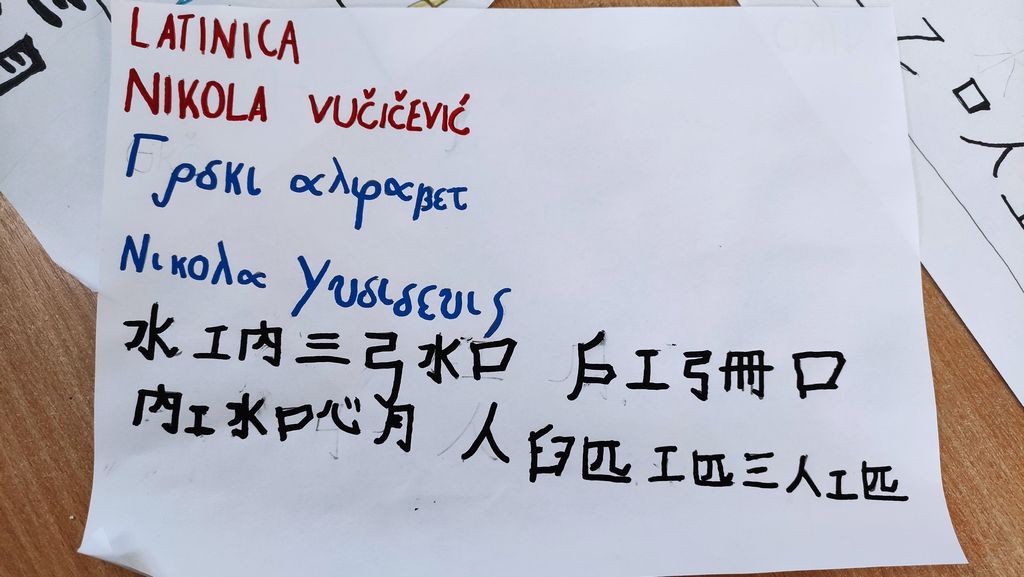 LATINICA
NIKOLA VUČIČEVIĆ
Γρδκι αλφαβετ
Νικολα Υυδιδευις
水工内三弓水口 戶工弓冊口
内工水口心月 人臼匹工匹三人工匹